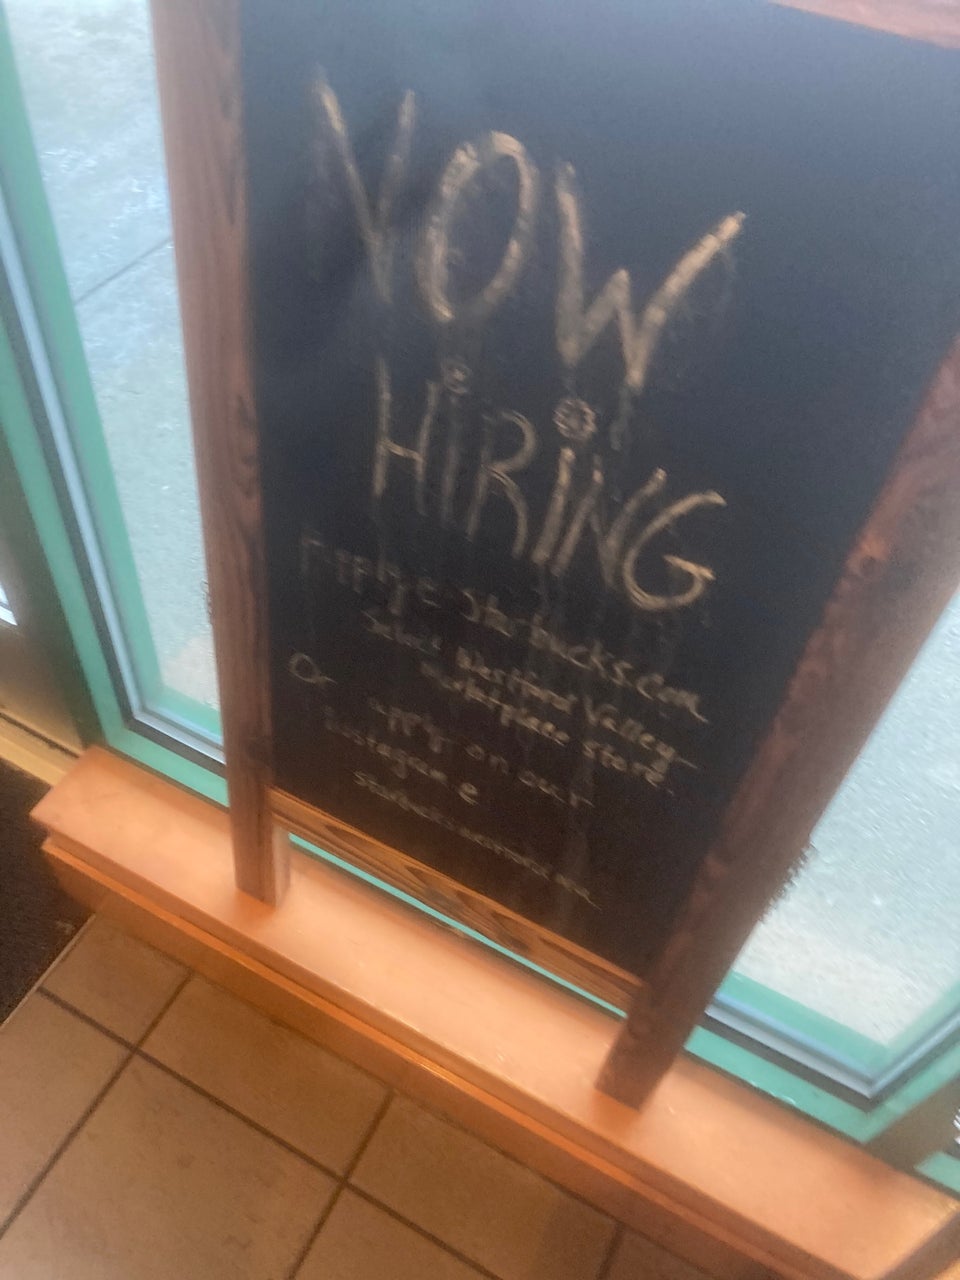 NOW
HiRiNG
Apply @ Starbucks.com
Select Westford Valley
Marketplace store.
Or apply on our
Instagram @